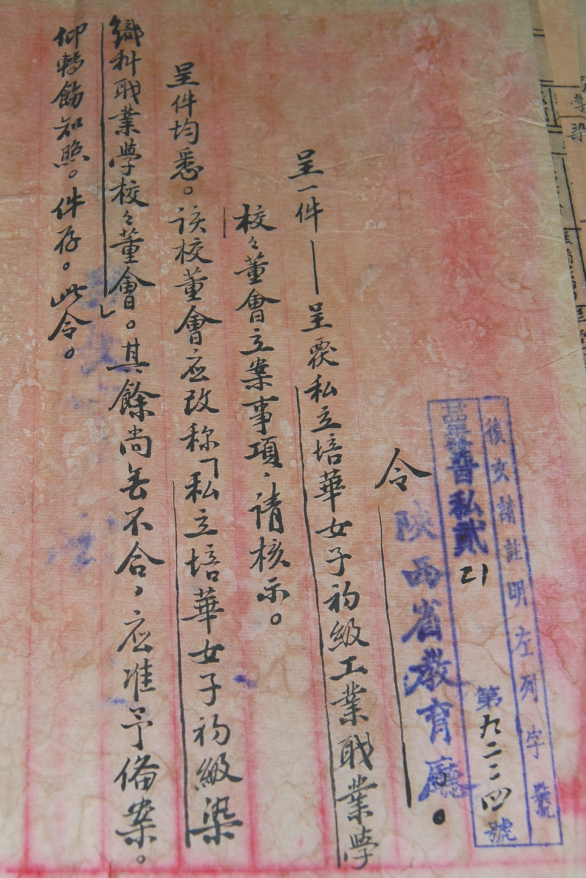 後文請註明左列字號
普私貳21第九二三四號
令陝西省教育廳。
呈一件——呈覆私立培華女子初級工業職業學
校々董會立案事項，請核示。
呈件均悉。該校董會应改称「私立培華女子初級染
織科職業學校々董會」。其餘尚無不合，应准予備案。
仰轉飭知照。件存。此令。